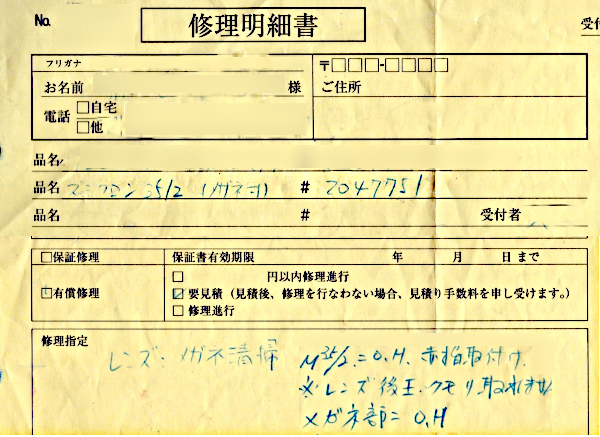 No. 修理明細書 受付
フリガナ 〒□□□-□□□□
お名前 様 ご住所
電話 □自宅
□他
品名
品名 ズミクロン35/2 (メガネ付) # 2047751
品名 # 受付者
□保証修理 保証書有効期限 年 月 日まで
□ 円以内修理進行
□有償修理 ☑要見積（見積後、修理を行なわない場合、見積り手数料を申し受けます。）
□修理進行
修理指定
レンズ・メガネ清掃 M35/2 = O.H. 赤指取付け
※レンズ後玉クモリ取れません
メガネ部= O.H